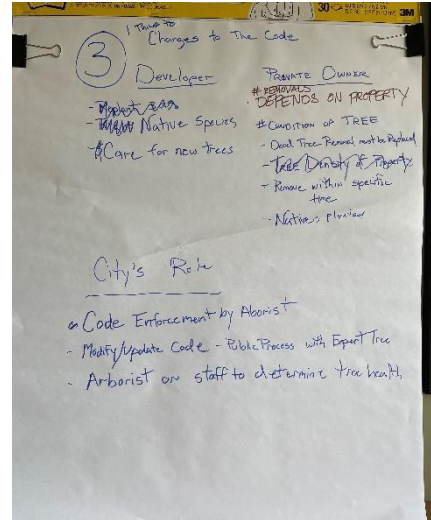 1 Thing to
Changes to The Code
3
Developer
- Native Species
- Care for new trees
PRIVATE OWNER
# REMOVALS
DEPENDS ON PROPERTY
# CONDITION OF TREE
- Dead Tree Removal must be Replaced
- Tree Density of Property
- Remove within specific
time
- Natives
City's Role
Code Enforcement by Aborist
- Modify/Update Code - Public Process with Expert Tree
- Arborist on staff to determine tree health
30
3M